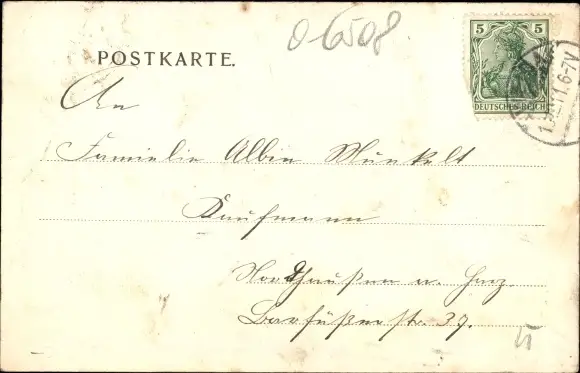 06508
POSTKARTE.
5 5
DEUTSCHES REICH
1.11. 6-7V
An
Familie Albin Munkelt
Kaufmann
Nordhausen a. Harz.
Barfüßerstr. 39.